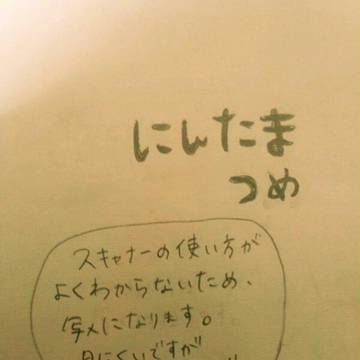 にんたま
つめ
スキャナーの使い方が
よくわからないため、
写メになります。
見にくいですが